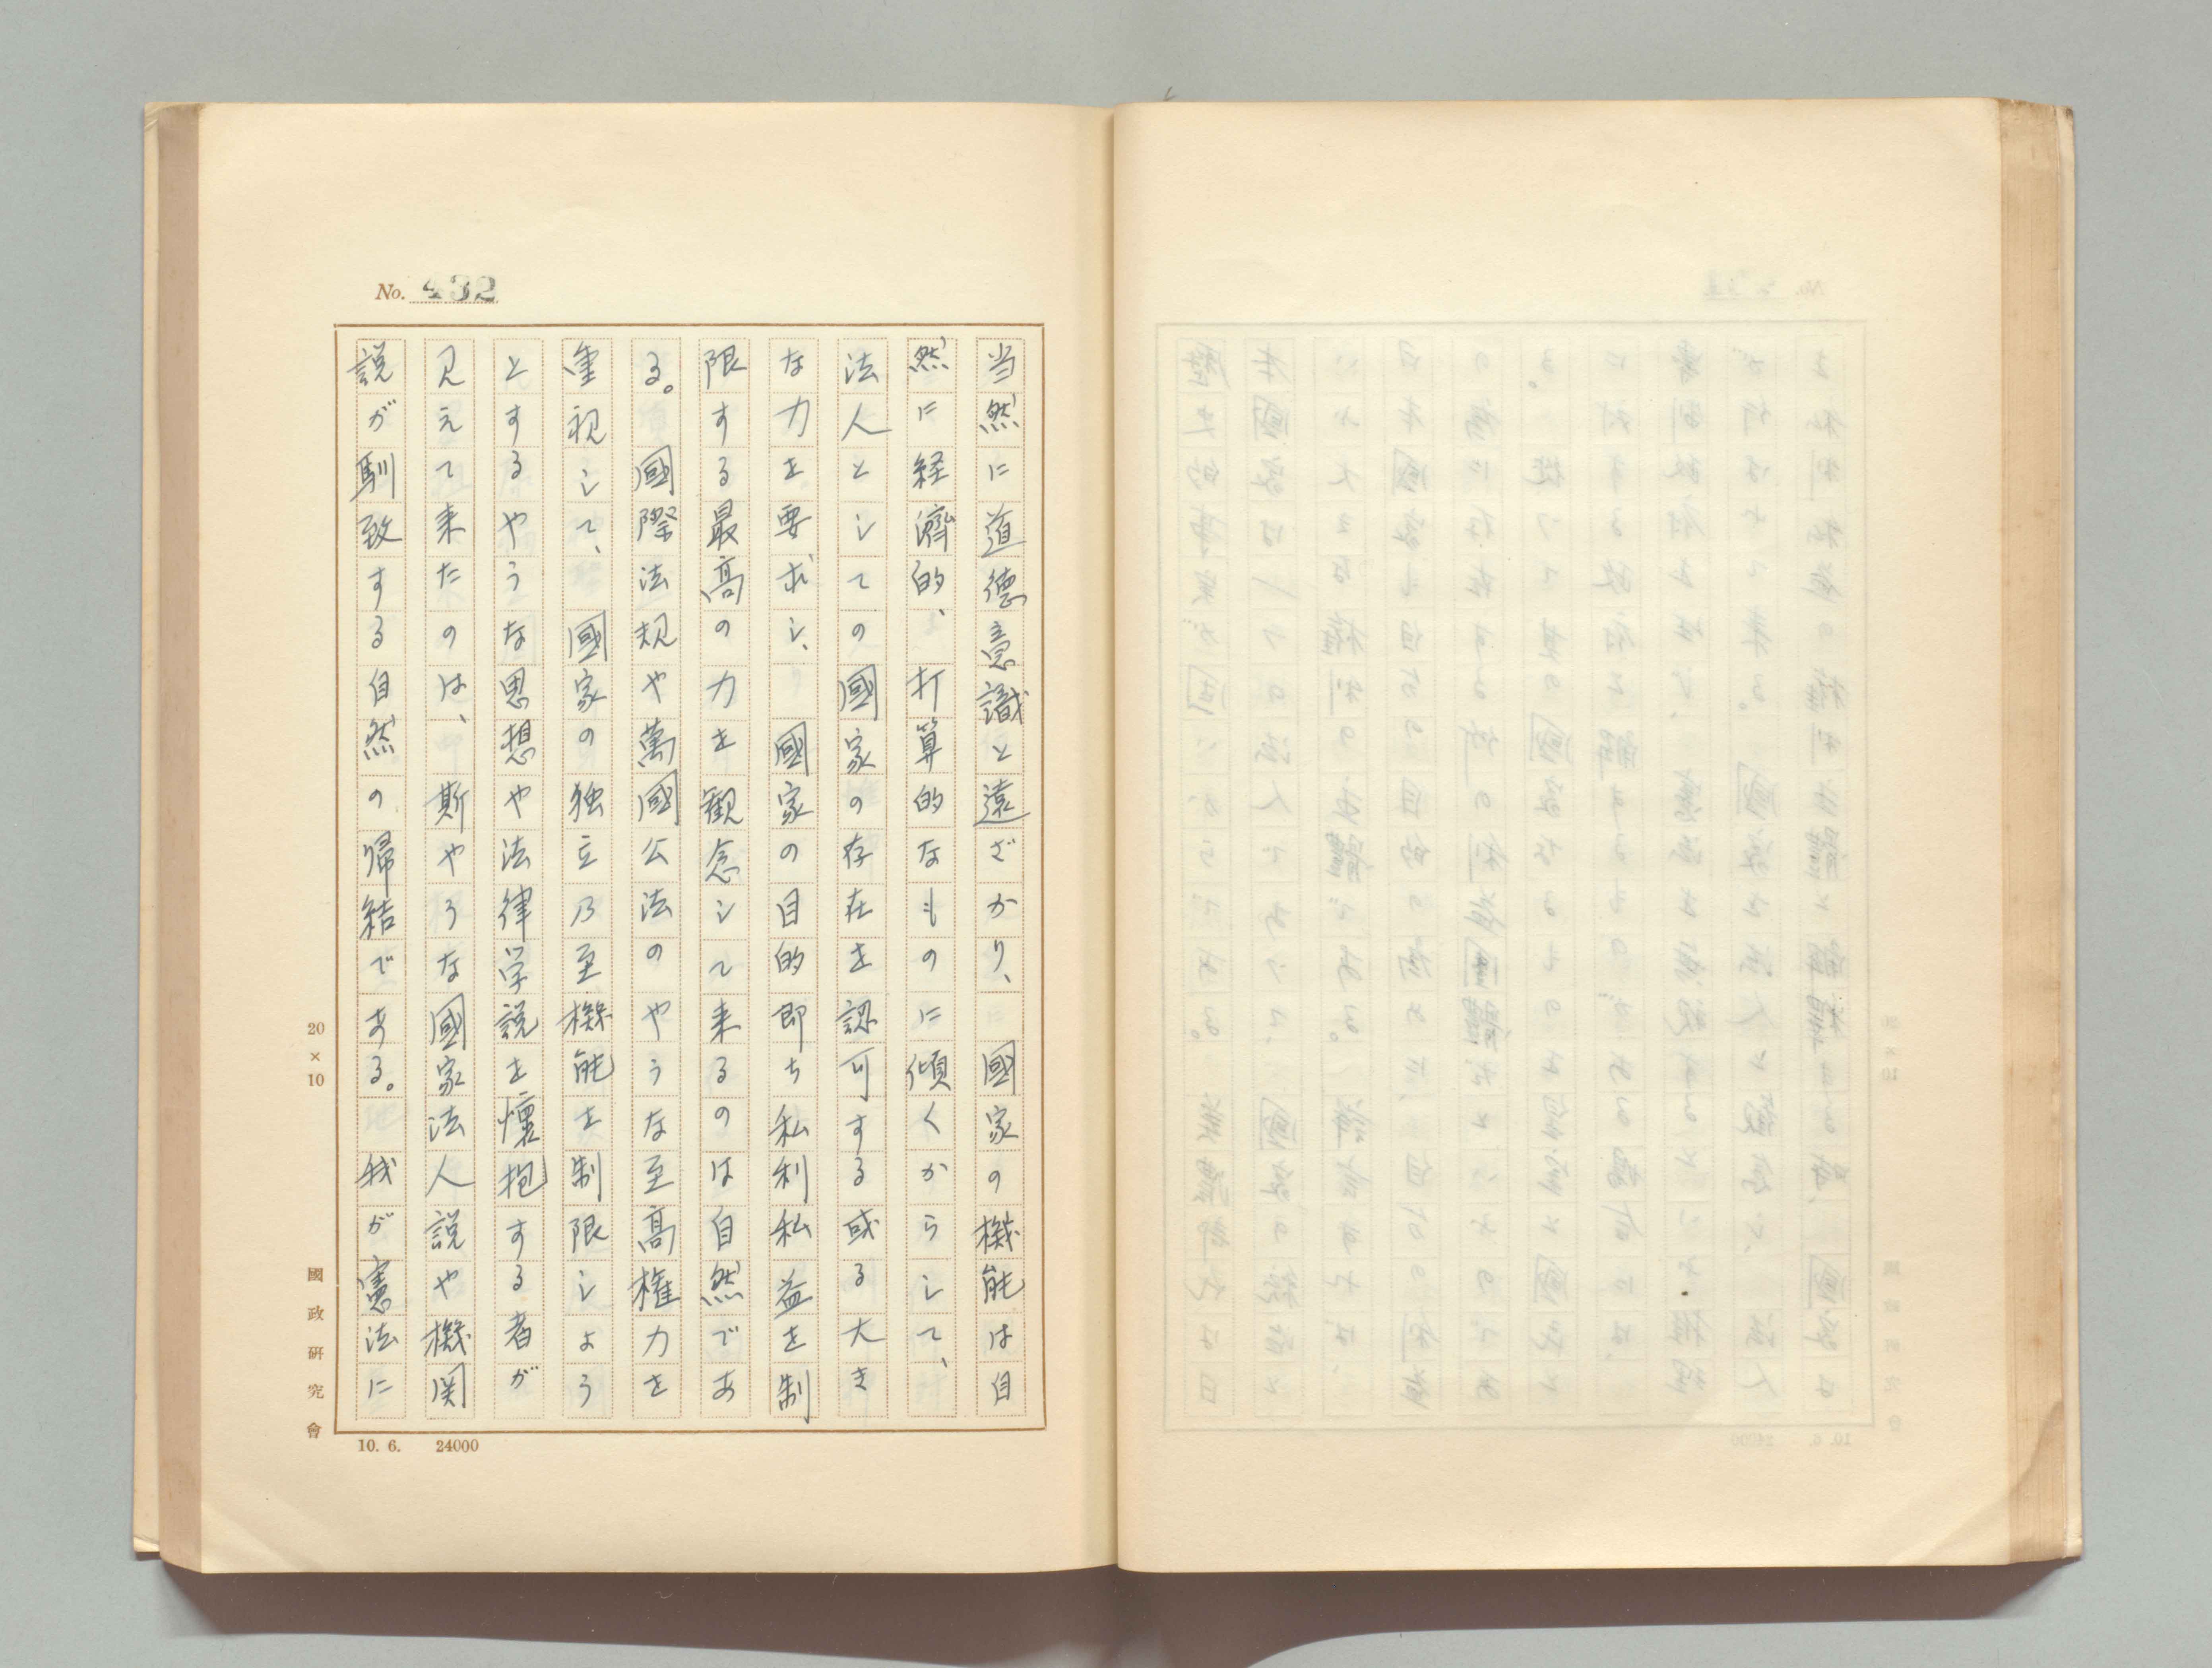 No. 432
当然に道德意識と遠ざかり、國家の機能は自
然に経濟的、打算的なものに傾くからして、
法人としての國家の存在を認可する或る大き
な力を要求し、國家の目的即ち私利私益を制
限する最高の力を観念して来るのは自然であ
る。國際法規や萬國公法のやうな至高権力を
重視して、國家の独立乃至機能を制限しよう
とするやうな思想や法律学説を懐抱する者が
見えて来たのは、斯やうな國家法人説や機関
説が馴致する自然の帰結である。我が憲法に
20×10
國政研究會
10. 6. 24000